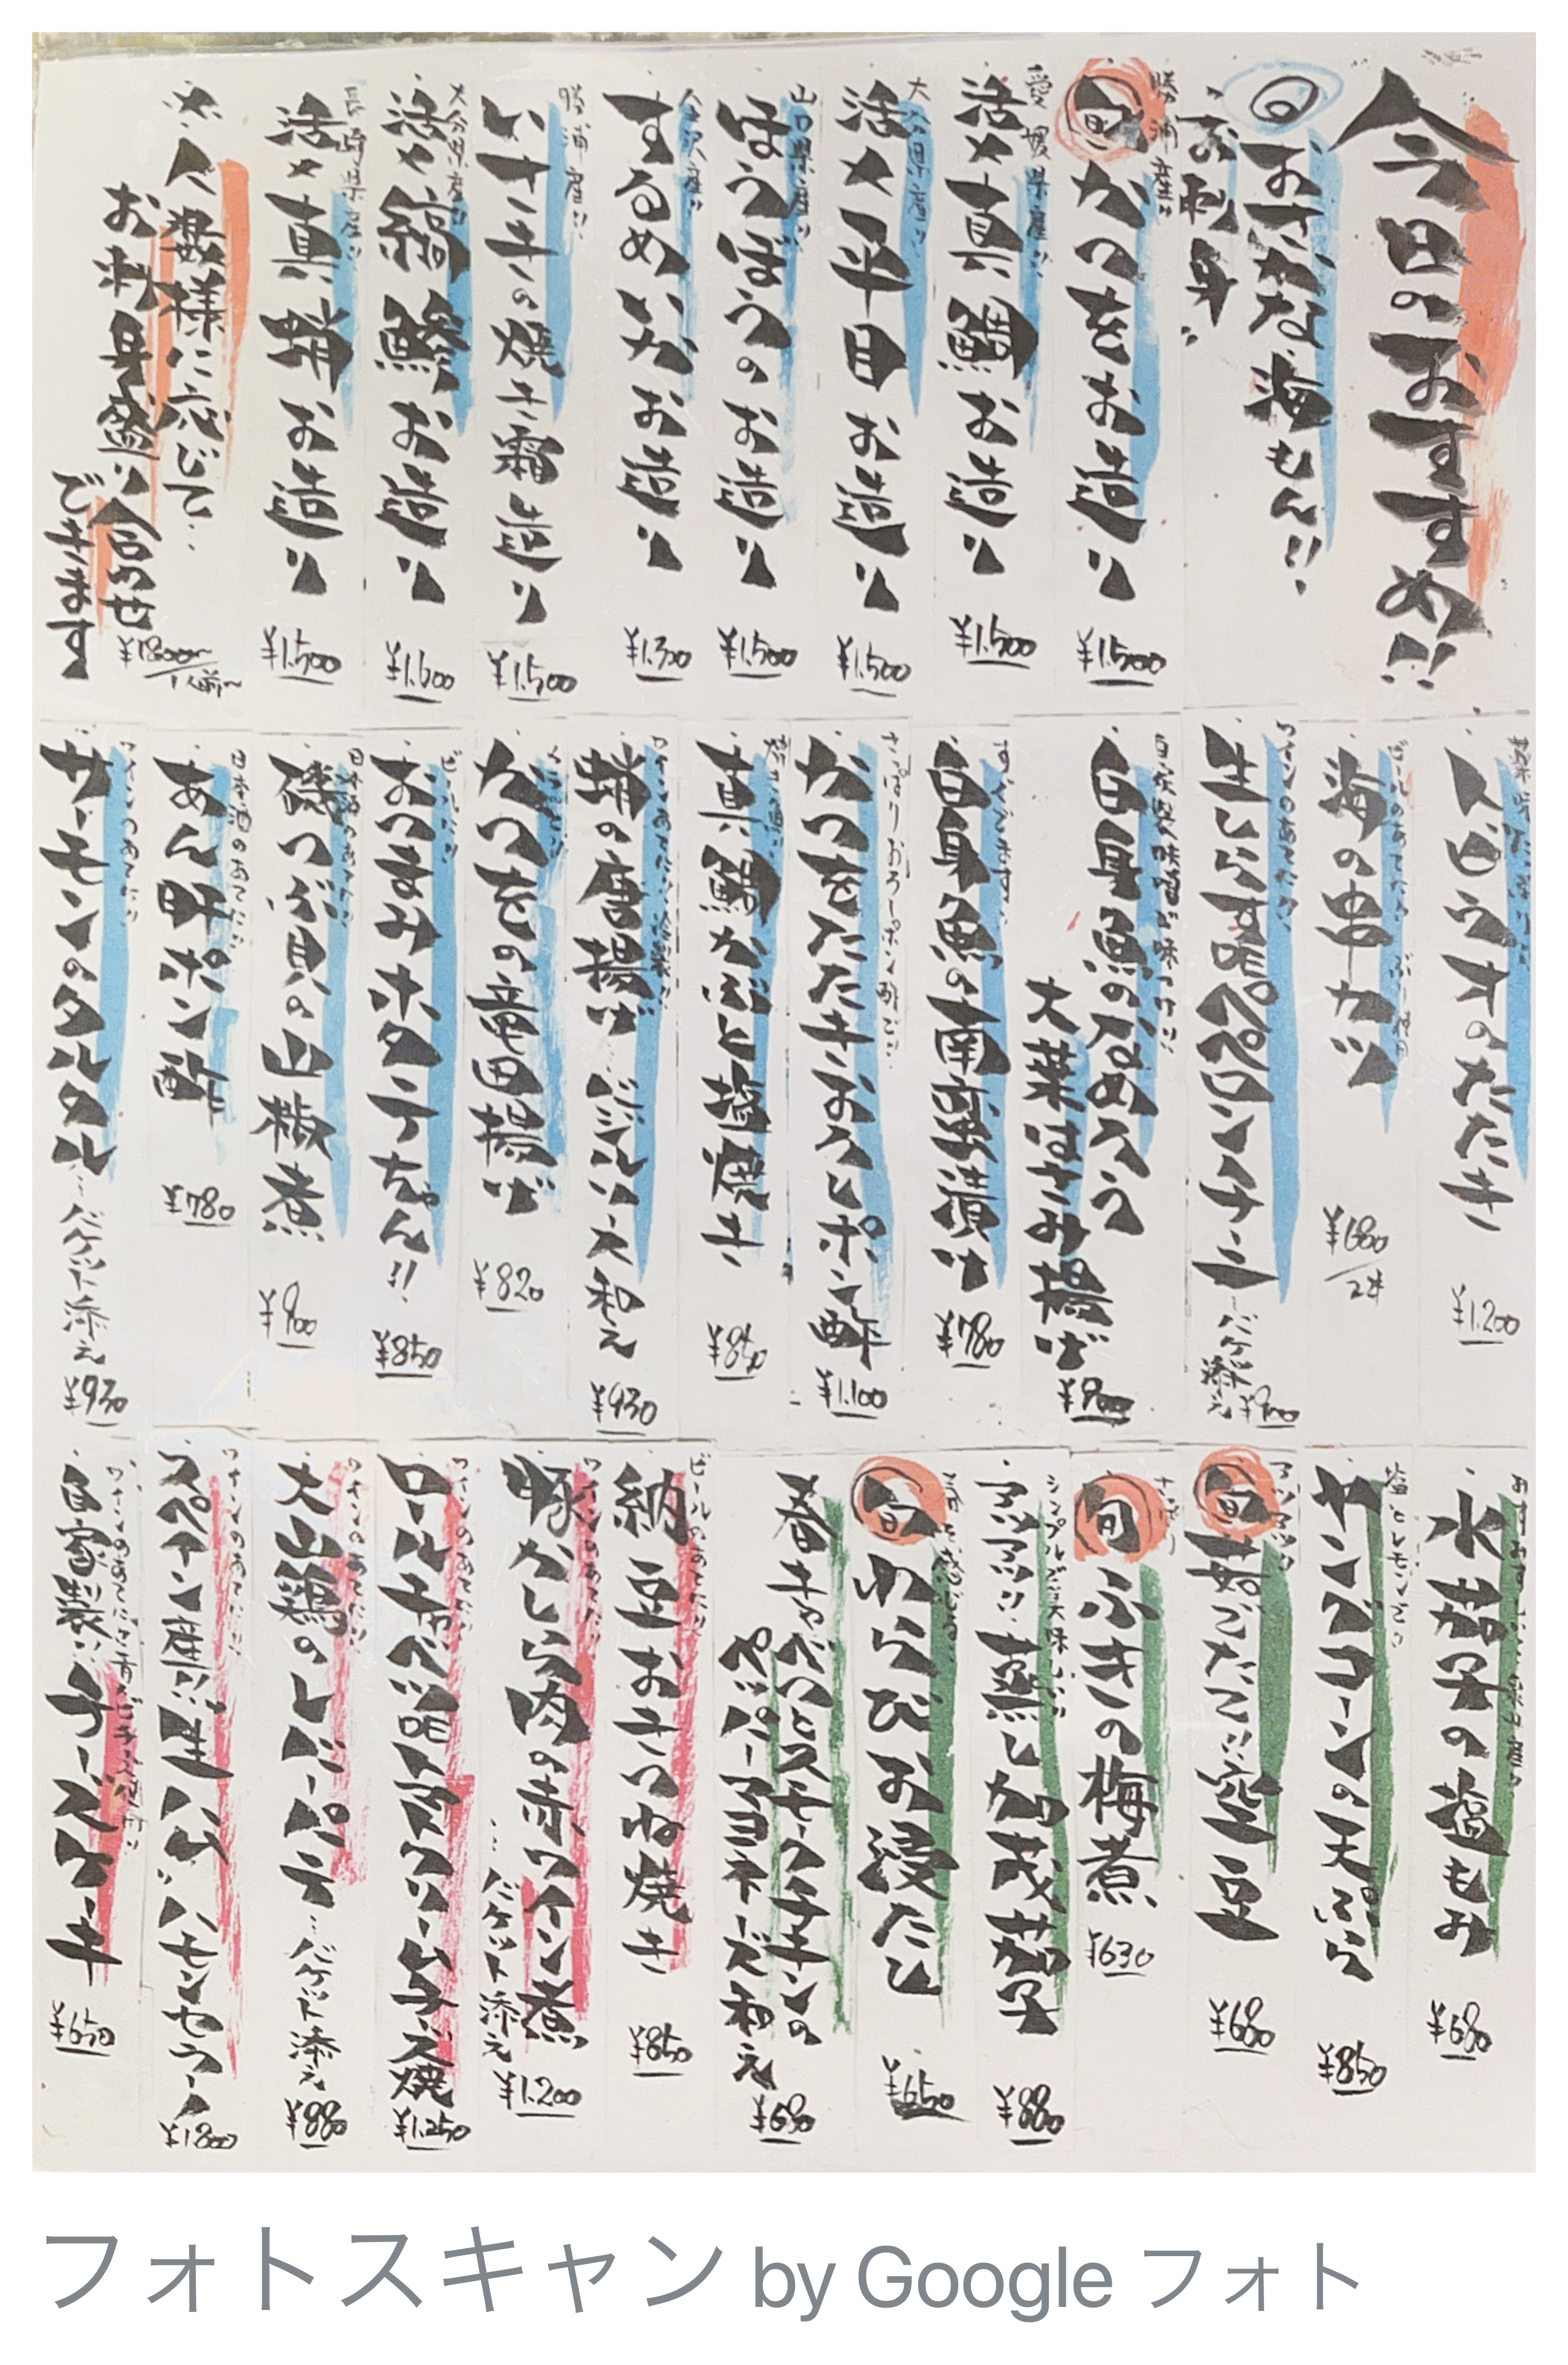 今日のおすすめ!!
おさかな海もん!!
お刺身
勝浦産!!
旬 かつをお造り
¥1.500
愛媛県産!!
活〆真鯛お造り
¥1.500
大分県産!!
活〆平目お造り
¥1.500
山口県産!!
ほうぼうのお造り
¥1.500
するめいかお造り
¥1.300
勝浦産!!
いさきの焼き霜造り
¥1.500
大分県産!!
活〆縞鯵お造り
¥1.600
長崎県産!!
活〆真蛸お造り
¥1.500
※人数様に応じて…
お刺身盛り合わせ
できます
¥1800〜/1人前〜
とびうおのたたき
¥1.200
ビールのあてに!!
海の串カツ
¥680/2本
ワインのあてに!!
生しらす味ペペロンチーニ
…バケット添え
¥900
自家製味噌が味つけ!!
白身魚のなめろう
大葉はさみ揚げ
¥900
白身魚の南蛮漬け
¥780
さっぱりおろしポン酢で!!
かつをたたきおろしポン酢
¥1.100
真鯛かぶと塩焼き
¥850
蛸の唐揚げ…バジルソース和え
¥930
かつをの竜田揚げ
¥820
おつまみホタテちゃん!!
¥850
日本酒のあてに!!
磯つぶ貝の山椒煮
¥900
日本酒のあてに!!
あん肝ポン酢
¥780
ワインのあてに!!
サーモンのタルタル…バケット添え
¥930
水茄子の塩もみ
¥680
塩とレモンで!!
ヤングコーンの天ぷら
¥850
旬 茹でたて!!空豆
¥680
旬 ふきの梅煮
¥630
シンプルに
アツアツ!!蒸し加茂茄子
¥880
旬 わらびお浸たし
¥650
春キャベツとスモークチキンの
ペッパーマヨネーズ和え
¥680
ビールのあてに!!
納豆おきつね焼き
¥850
ワインのあてに!!
豚かしら肉の赤ワイン煮
…バケット添え
¥1.200
ワインのあてに!!
ロールキャベツ
クリームチーズ焼
¥1.250
ワインのあてに!!
大山鶏のレバーパテ…バケット添え
¥880
ワインのあてに!!
スペイン産!!生ハム!!ハモンセラーノ
¥1800
自家製!!チーズケーキ
¥650
フォトスキャン by Google フォト